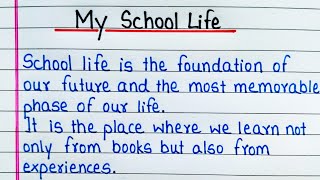 My School Life
School life is the foundation of
our future and the most memorable
phase of our life.
It is the place where we learn not
only from books but also from
experiences.